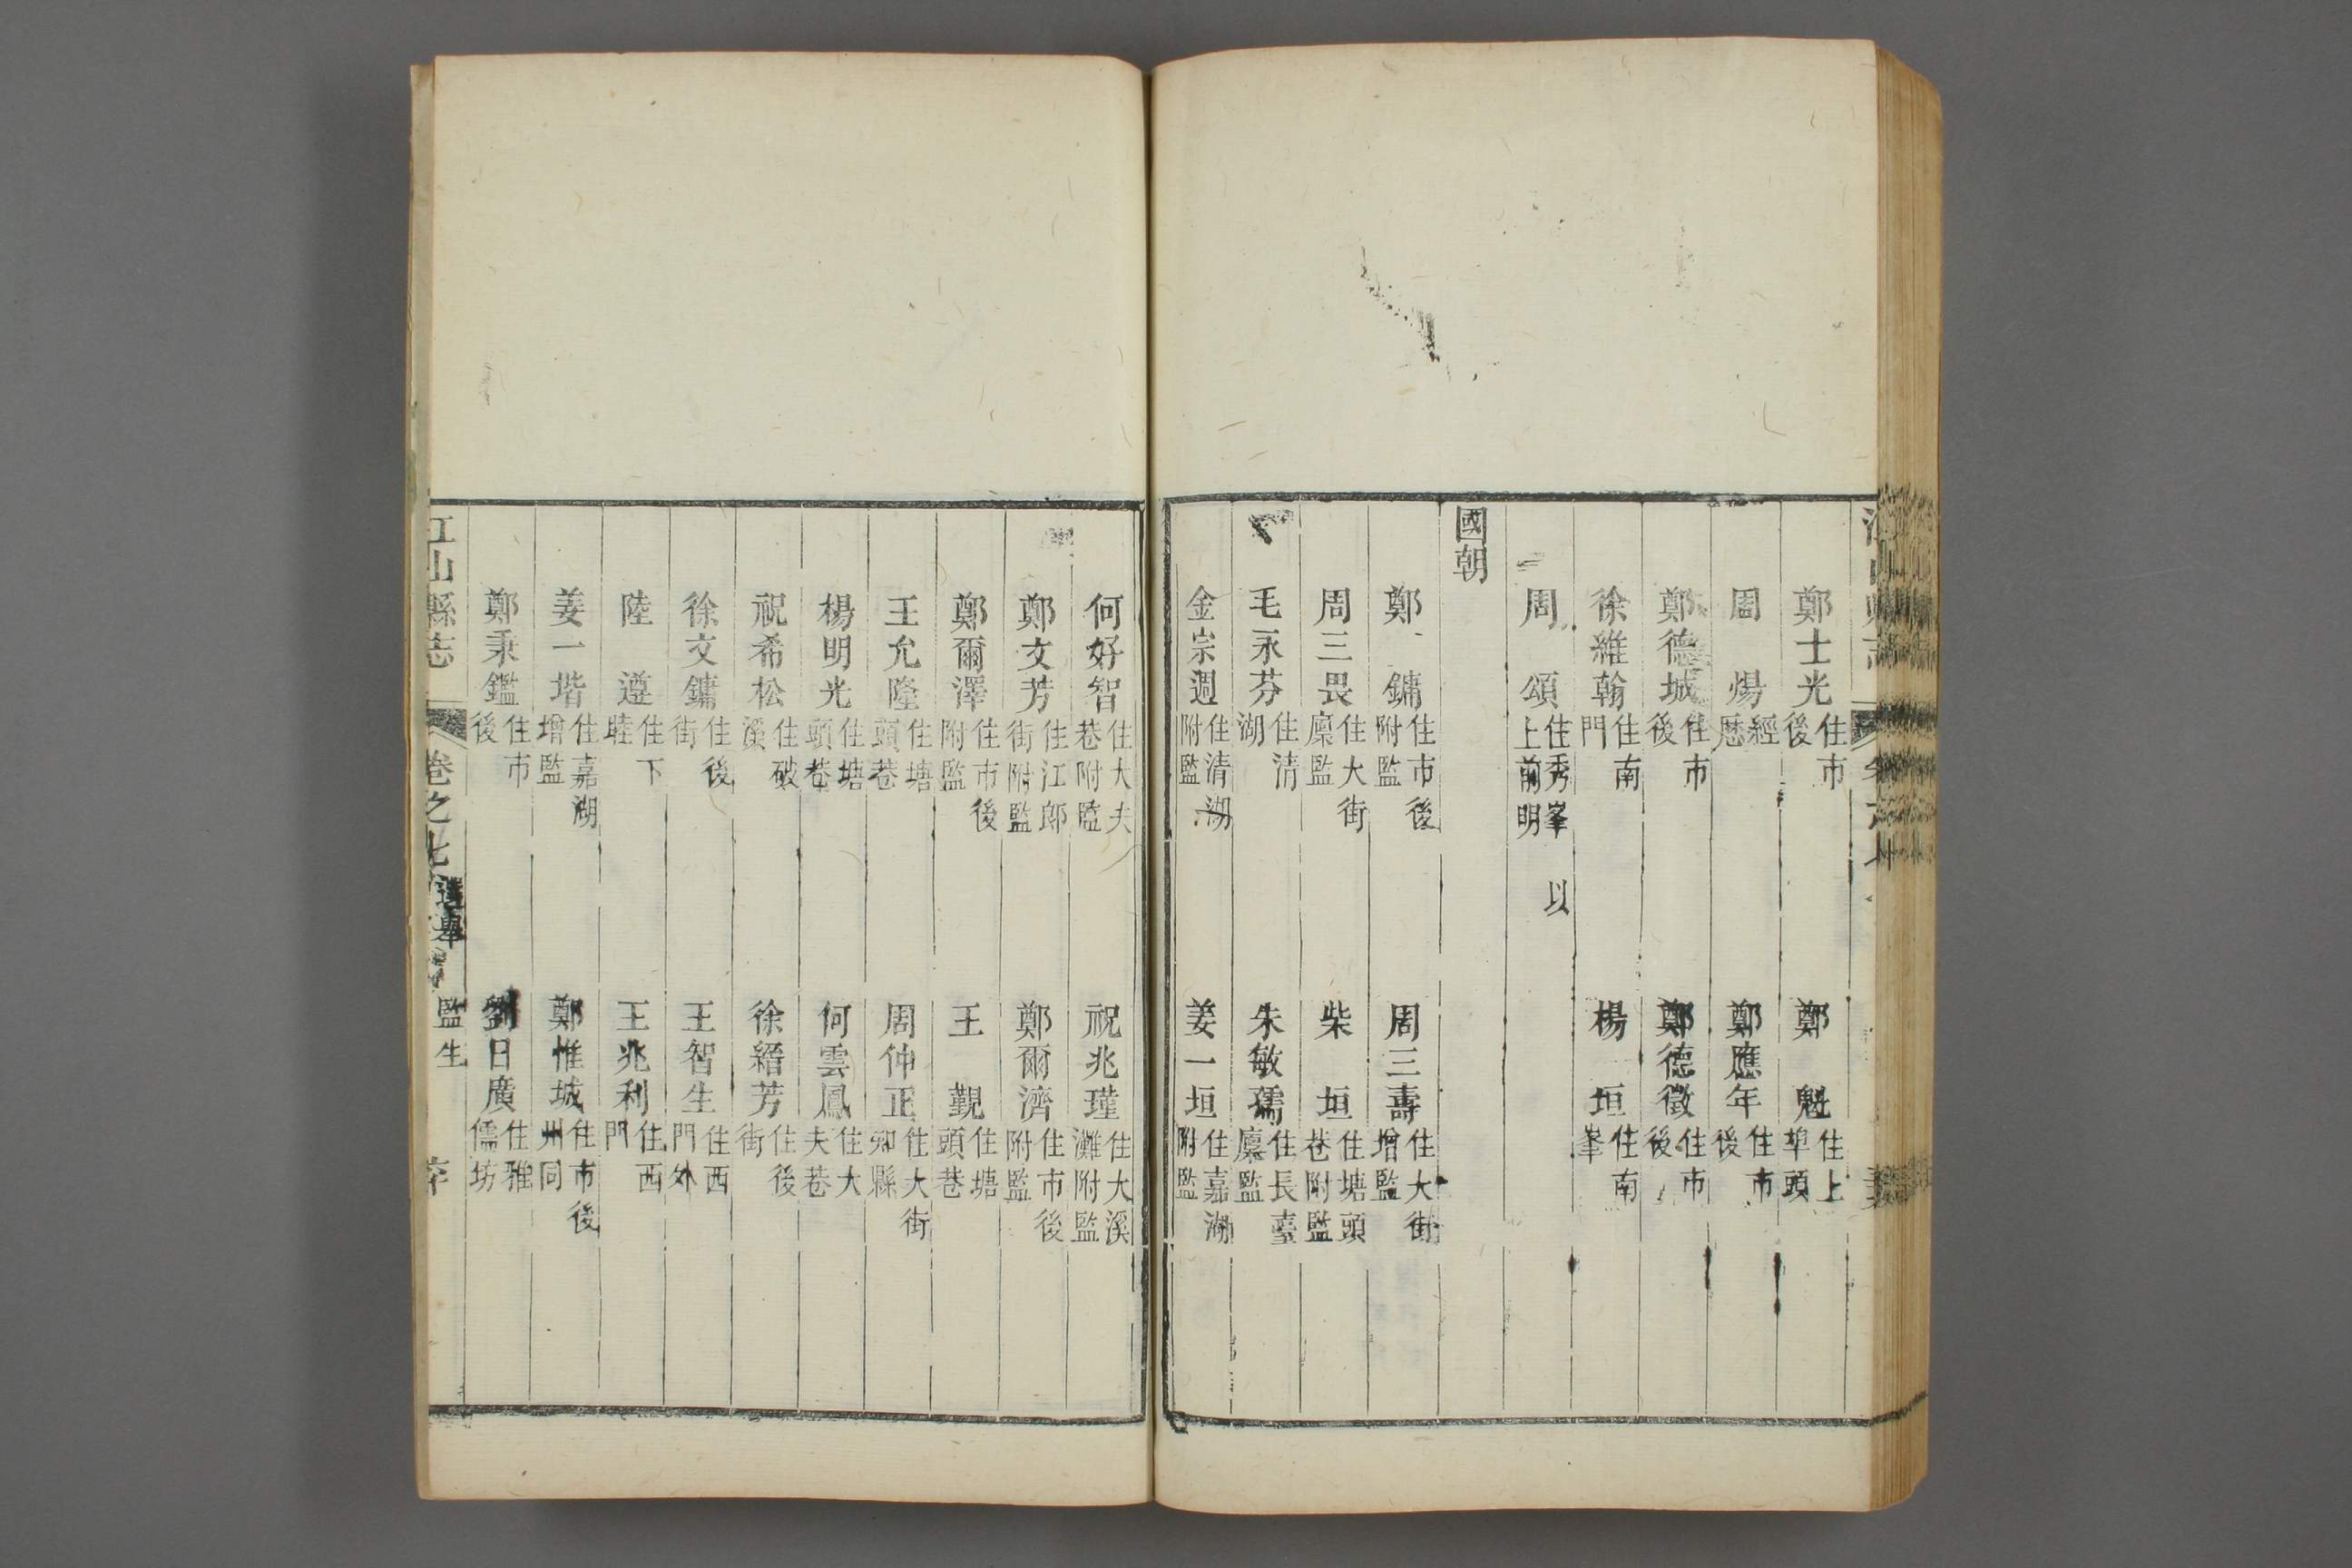 鄭士光住市後 鄭魁住上埠頭
周煬經歷 鄭應年住市後
鄭德城住市後 鄭德徵住市後
徐維翰住南門 楊垣住南峯
周頌住秀峯 以上前明
國朝
鄭鏞住市後附監 周三壽住大街增監
周三畏住大街廩監 柴垣住塘頭巷附監
毛永芬住清湖 朱敏孺住長臺廩監
金宗週住清湖附監 姜一垣住嘉湖附監
何好智住大夫巷附監 祝兆瑾住大溪灘附監
鄭文芳住江郎街附監 鄭爾濟住市後附監
鄭爾澤住市後附監 王觀住塘頭巷
王允隆住塘頭巷 周仲正住大街知縣
楊明光住塘頭巷 何雲鳳住大夫巷
祝希松住破溪 徐縉芳住後街
徐文鏞住後街 王智生住西門外
陸遵住下睦 王兆利住西門
姜一堦住嘉湖增監 鄭惟城住市後州同
鄭秉鑑住市後 劉日廣住雅儒坊
江山縣志 卷之七 選舉 監生